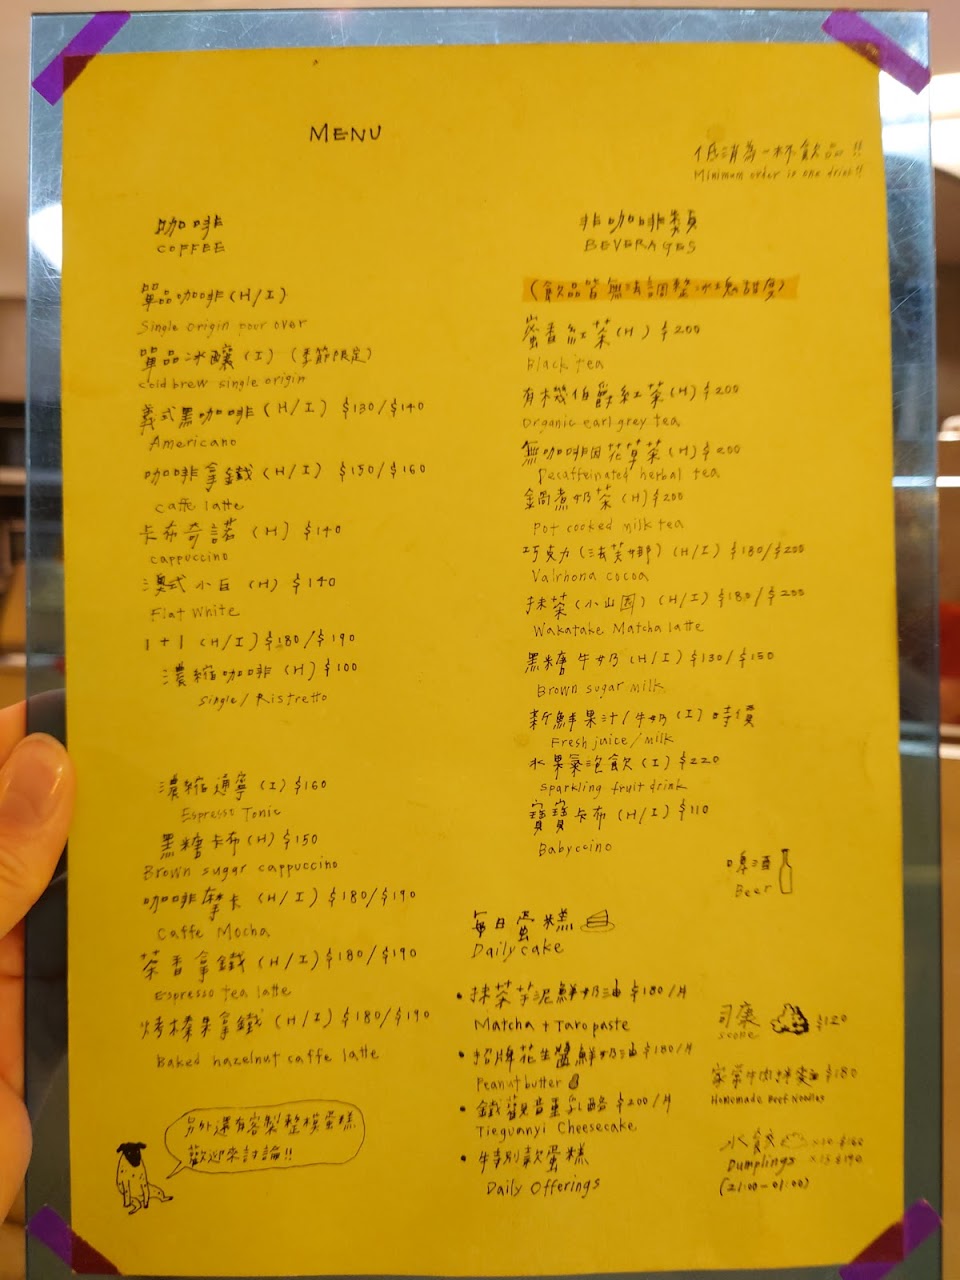 MENU
低消為一杯飲品!!
Minimum order is one drink!!
咖啡
COFFEE
單品咖啡(H/I)
Single origin pour over
單品冰釀(I)(季節限定)
cold brew single origin
義式黑咖啡(H/I) $130/$140
Americano
咖啡拿鐵(H/I) $150/$160
caffe latte
卡布奇諾(H) $140
cappuccino
澳式小白(H) $140
Flat White
1+1 (H/I) $180/$190
濃縮咖啡(H) $100
single/Ristretto
濃縮通寧(I) $160
Espresso Tonic
黑糖卡布(H) $150
Brown sugar cappuccino
咖啡摩卡(H/I) $180/$190
Caffe Mocha
茶香拿鐵(H/I) $180/$190
Espresso tea latte
烤榛果拿鐵(H/I) $180/$190
Baked hazelnut caffe latte
另外還有客製整模蛋糕
歡迎來討論!!
非咖啡類
BEVERAGES
(飲品皆無法調整冰塊甜度)
蜜香紅茶(H) $200
Black tea
有機伯爵紅茶(H) $200
Organic earl grey tea
無咖啡因花草茶(H) $200
Decaffeinated herbal tea
鍋煮奶茶(H) $200
Pot cooked milk tea
巧克力(法芙娜)(H/I) $180/$200
Valrhona cocoa
抹茶(小山園)(H/I) $180/$200
Wakatake Matcha latte
黑糖牛奶(H/I) $130/$150
Brown sugar milk
新鮮果汁/牛奶(I) 時價
Fresh juice/milk
水果氣泡飲(I) $220
sparkling fruit drink
寶寶卡布(H/I) $110
Babyccino
啤酒
Beer
每日蛋糕
Daily cake
• 抹茶芋泥鮮奶油 $180/片
Matcha + Taro paste
• 招牌花生醬鮮奶油 $180/片
Peanut butter
• 鐵觀音重乳酪 $200/片
Tieguanyi Cheesecake
• 特別款蛋糕
Daily Offerings
司康 $120
scone
家常牛肉拌麵 $180
Homemade Beef Noodles
水餃 x10 $160
Dumplings x15 $190
(21:00-01:00)